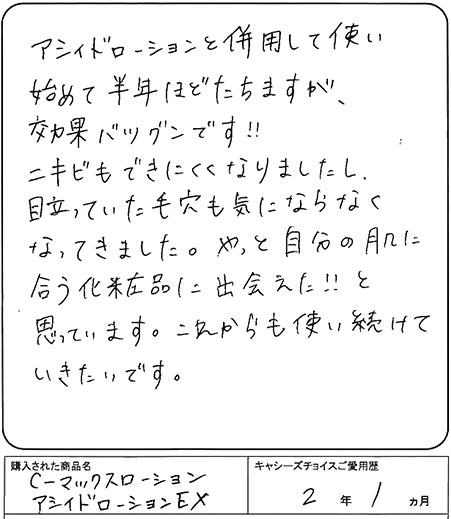 アシィドローションと併用して使い
始めて半年ほどたちますが、
効果バツグンです!!
ニキビもできにくくなりましたし、
目立っていた毛穴も気にならなく
なってきました。やっと自分の肌に
合う化粧品に出会えた!!と
思っています。これからも使い続けて
いきたいです。
購入された商品名
Cーマックスローション
アシィドローションEX
キャシーズチョイスご愛用歴
2年1ヵ月